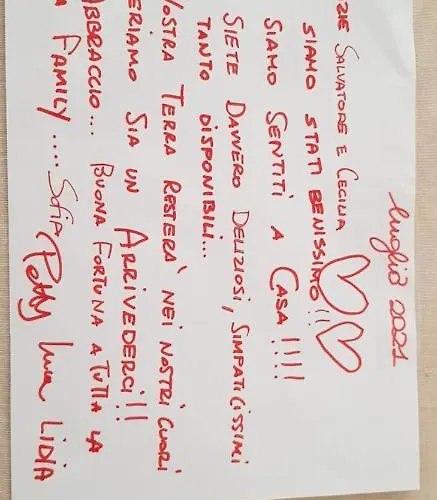 luglio 2021
ZIE SALVATORE E CECILIA
SIAMO STATI BENISSIMO!!
SIAMO SENTITI A CASA!!!!
SIETE DAVVERO DELIZIOSI, SIMPATICISSIMI
TANTO DISPONIBILI...
VOSTRA TERRA RESTERÀ NEI NOSTRI CUORI
ERIAMO SIA UN ARRIVEDERCI!!
ABBRACCIO... BUONA FORTUNA A TUTTA LA
A FAMILY.... SOFIA Patty Luca LIDIA